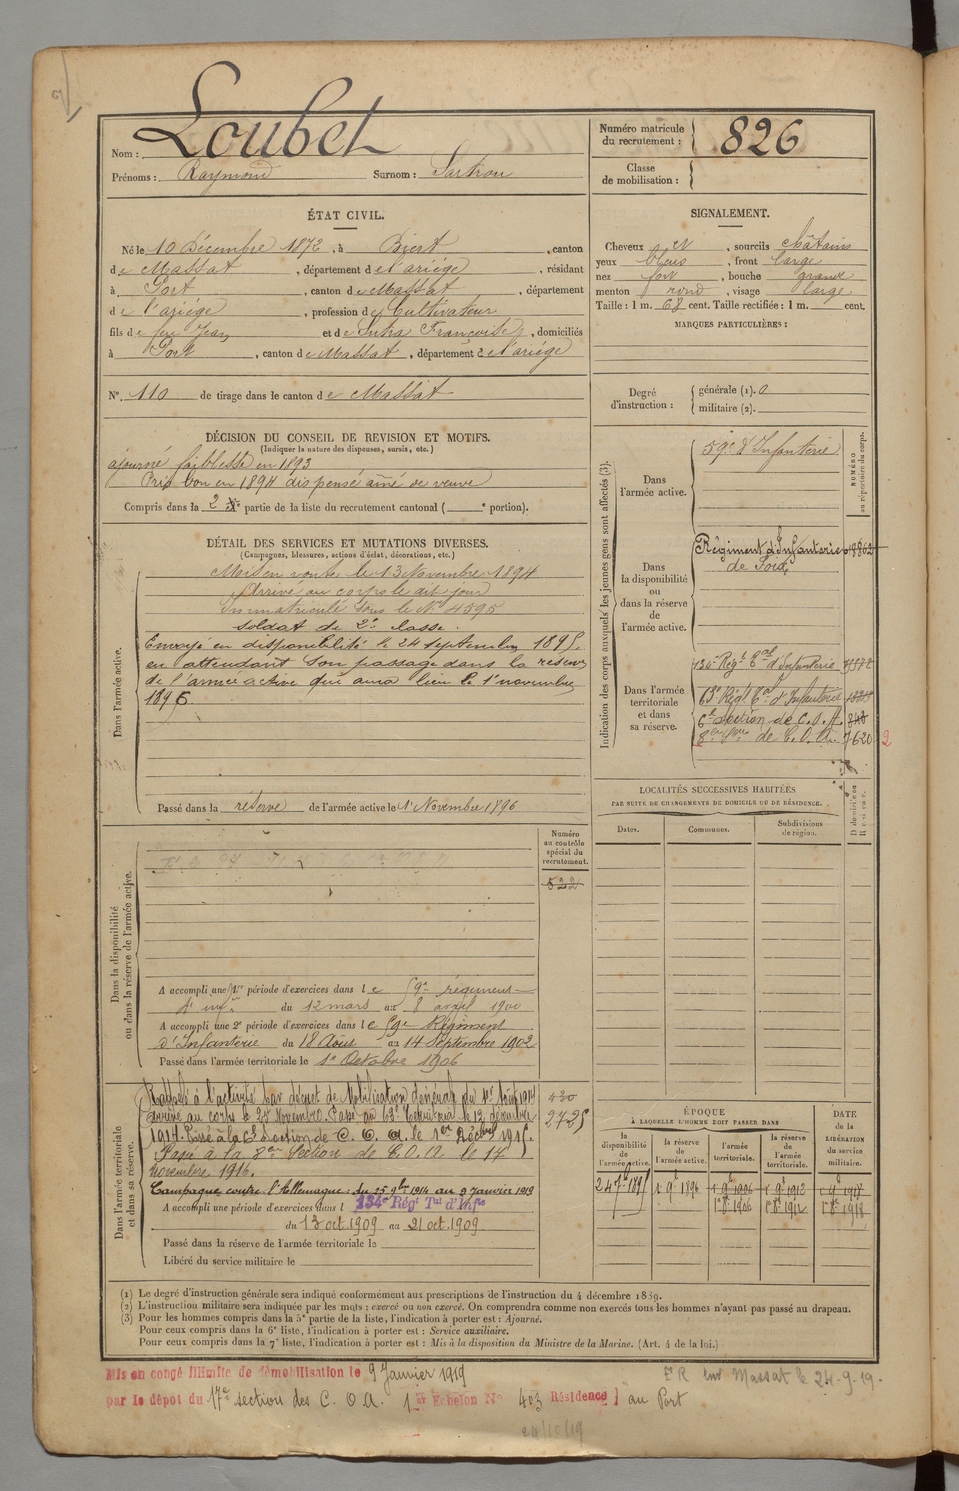 Nom : Loubet
Prénoms : Raymond Surnom :
Numéro matricule du recrutement : 826
Classe de mobilisation :
ÉTAT CIVIL.
Né le 10 Décembre 1872, à Biert, canton
de Massat, département de l'ariége, résidant
à Port, canton de Massat, département
de l'ariége, profession de Cultivateur
fils de feu Jean et de Françoise, domiciliés
à Port, canton de Massat, département de l'ariége
N°. 110 de tirage dans le canton de Massat
DÉCISION DU CONSEIL DE REVISION ET MOTIFS.
(Indiquer la nature des dispenses, sursis, etc.)
ajourné faiblesse en 1893
Pris bon en 1894 dispensé aîné de veuve
Compris dans la 2 e partie de la liste du recrutement cantonal ( e portion).
DÉTAIL DES SERVICES ET MUTATIONS DIVERSES.
(Campagnes, blessures, actions d'éclat, décorations, etc.)
Dans l'armée active.
Mis en route le 13 Novembre 1894
Arrivé au corps le dit jour
Immatriculé sous le N° 4595
soldat de 2e classe.
Envoyé en disponibilité le 24 septembre 1895,
en attendant son passage dans la réserve
de l'armée active qui aura lieu le 1er novembre
1896
Passé dans la réserve de l'armée active le 1er Novembre 1896
Dans la disponibilité ou dans la réserve de l'armée active.
Numéro au contrôle spécial du recrutement.
522
A accompli une 1re période d'exercices dans le 59e régiment
d'infie du 12 mars au 8 avril 1900
A accompli une 2e période d'exercices dans le 59e Régiment
d'Infanterie du 18 Aout au 14 Septembre 1902
Passé dans l'armée territoriale le 1er Octobre 1906
Dans l'armée territoriale et dans sa réserve.
Rappelé à l'activité par décret de Mobilisation Générale du 1er Août 1914
Arrivé au corps le 25 Novembre. Passé au 63e Territorial le 12 décembre
1914. Passé à la 6e Section de C. O. A. le 1er 1915.
Passé à la 8e Section de C.O.A. le 17
novembre 1916.
Campagne contre l'Allemagne : du 25 9bre 1914 au 9 Janvier 1919
A accompli une période d'exercices dans l 134e Régt Tal d'Infie
du 13 oct. 1909 au 21 oct. 1909
Passé dans la réserve de l'armée territoriale le
Libéré du service militaire le
430
2725
SIGNALEMENT.
Cheveux et, sourcils châtains
yeux bleus, front large
nez fort, bouche grande
menton rond, visage large
Taille : 1 m. 68 cent. Taille rectifiée : 1 m. cent.
MARQUES PARTICULIÈRES :
Degré d'instruction : générale (1). 0
militaire (2).
Indication des corps auxquels les jeunes gens sont affectés (3).
NUMÉRO au répertoire du corps.
Dans l'armée active.
59e d'Infanterie
Dans la disponibilité ou dans la réserve de l'armée active.
Régiment d'Infanterie
de Foix
Dans l'armée territoriale et dans sa réserve.
134e Régt Tal d'Infanterie
63e Régt Tal d'Infanterie
6e section de C. O. A.
8e Son de C. O. A. 7620 2
LOCALITÉS SUCCESSIVES HABITÉES
PAR SUITE DE CHANGEMENTS DE DOMICILE OU DE RÉSIDENCE.
Dates. Communes. Subdivisions de région.
ÉPOQUE
À LAQUELLE L'HOMME DOIT PASSER DANS
la disponibilité de l'armée active. la réserve de l'armée active. l'armée territoriale. la réserve de l'armée territoriale.
DATE de la LIBÉRATION du service militaire.
24 7e 1895 1 9e 1896 1 9e 1906 1 9e 1912 1 9e 1918
1er 8e 1906 1er 8e 1912 1er 8e 1918
(1) Le degré d'instruction générale sera indiqué conformément aux prescriptions de l'instruction du 4 décembre 1889.
(2) L'instruction militaire sera indiquée par les mots : exercé ou non exercé. On comprendra comme non exercés tous les hommes n'ayant pas passé au drapeau.
(3) Pour les hommes compris dans la 5e partie de la liste, l'indication à porter est : Ajourné.
Pour ceux compris dans la 6e liste, l'indication à porter est : Service auxiliaire.
Pour ceux compris dans la 7e liste, l'indication à porter est : Mis à la disposition du Ministre de la Marine. (Art. 4 de la loi.)
Mis en congé illimité de démobilisation le 9 Janvier 1919
par le dépôt du 17e section des C. O A. 1er Echelon N° 403 Résidence } au Port
Massat le 24-9-19.
24/10/19